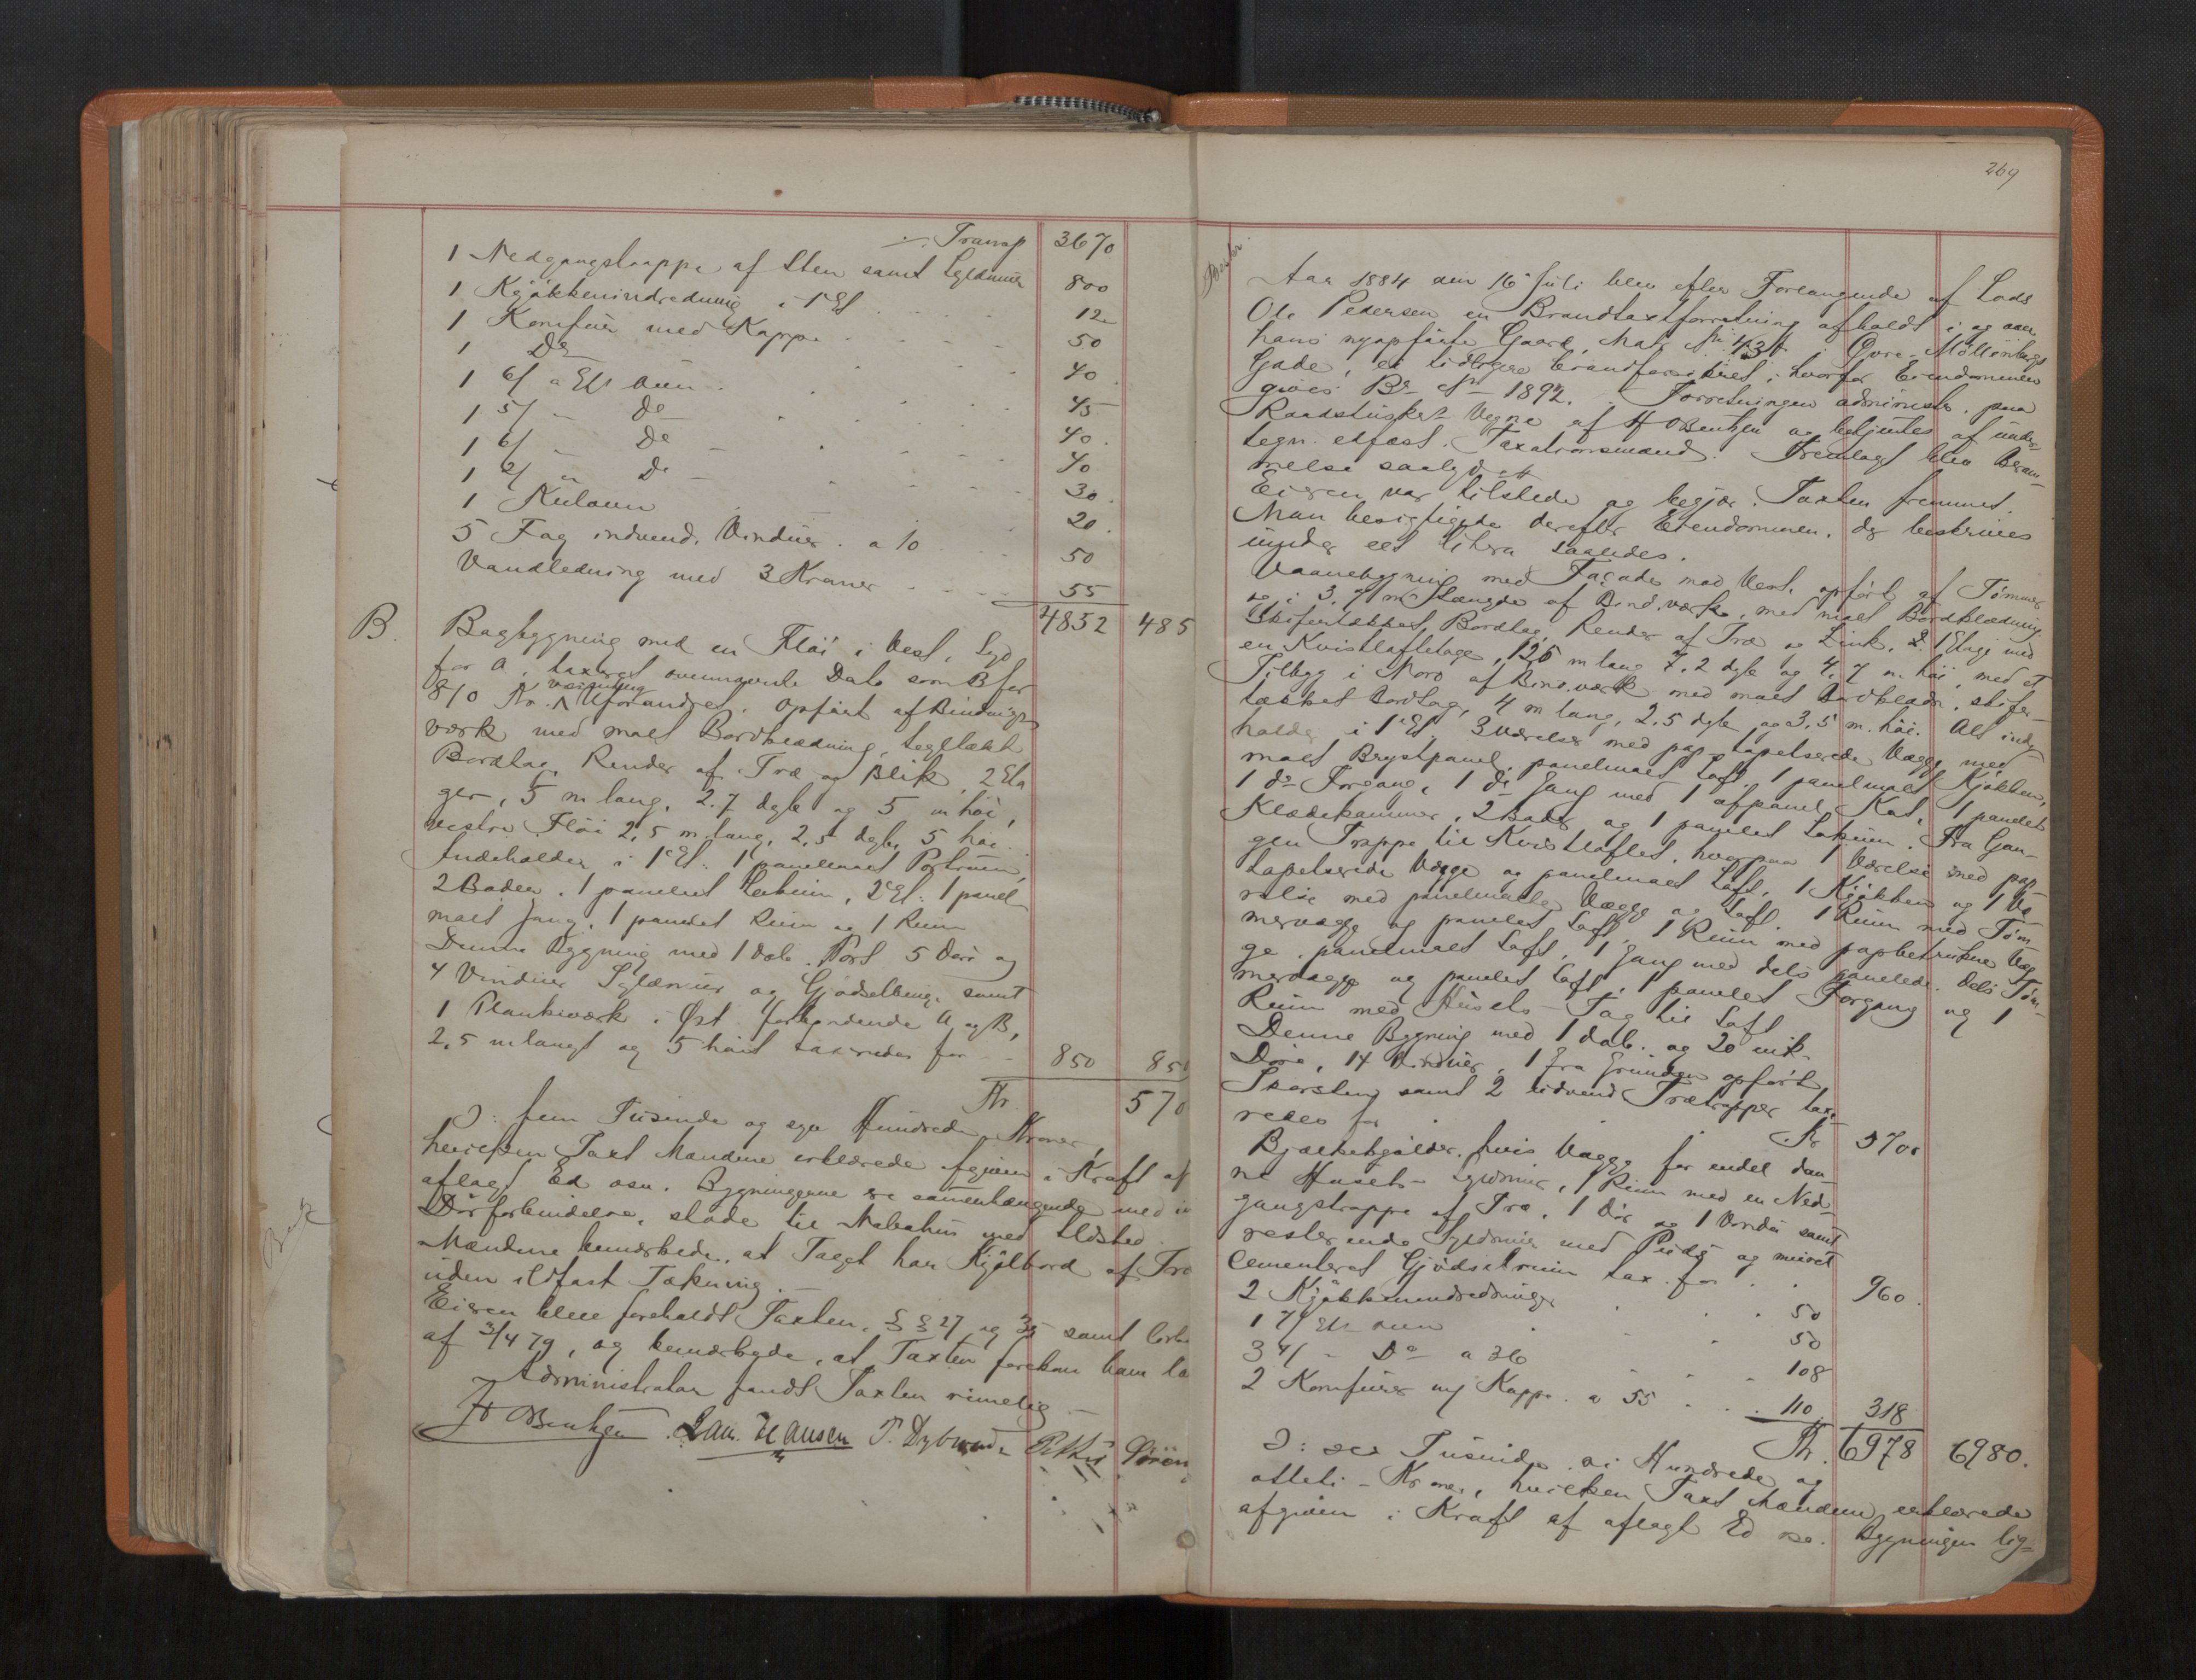 Transp 3670
1 Nedgangstrappe af Sten samt Syldmur 800
1 Kjøkkenindredning i 1 Et. 12
1 Komfur med Kappe 50
1 Do 40
1 6/ a Et. Ovn 45
1 5/ - Do 40
1 6/ - Do 40
1 2/ a Do 30
1 Kulovn 20
5 Fag indvend. Vinduer a 10 50
Vandledning med 3 Kraner 55
4852 485
B. Bagbygning med en Fløi i Vest, Syd
for A, taxeret ovennævnte Dato som B for
810 Kr. væsentlig Uforandret. Opført af Bindings
værk med malt Bordklædning, tegltækt
Bordtag, Render af Træ og Blik, 2 Eta
ger, 5 m lang, 2.7 dyb og 5 m høi,
vestre Fløi 2,5 m lang, 2,5 dyb, 5 høi.
Indeholder i 1 Et: 1 panelmalt Portrum,
2 Boder, 1 panelet Lokum, 2 Et: 1 panel
malt Gang, 1 panelet Rum og 1 Rum
Denne Bygning med 1 dob. Port 5 Døre og
4 Vinduer Syldmur og Gjødselbinge samt
1 Plankeværk i Øst forbindende A og B,
2,5 m langt og 5 høit taxeredes for 850 85
Kr. 570
ɔ: fem Tusinde og syv Hundrede Kroner,
hvilken Taxt Mændene erklærede afgiven i Kraft af
aflagt Ed osv. Bygningerne ere sammenhængende med
Dørforbindelse, støde til Nabohus med Ildsted.
Mændene bemærkede, at Taget har Kjølbord af Træ
uden ildfast Tækning.
Eieren blev foreholdt Taxten, §§ 27 og 35 samt
af 3/4 79, og bemærkede, at Taxten forekom ham
Administrator fandt Taxten rimelig.
H OBentzen Lau. Hansen P. Dybvad
269
Aar 1884 den 16 Juli blev efter Forlangende af Lods
Ole Pedersen en Brandtaxtforretning afholdt i og over
hans nyopførte Gaard, Matr No i Øvre-Møllenbergs
Gade, ei tidligere brandforsikret, hvorfor Eiendommen
gives Br No 1892. Forretningen administr. paa
Raadstuskr. Vegne af H OBentzen og betjentes af under
tegn. edfæst. Taxationsmænd. Fremlagt blev Beram-
melse saalyd.
Eieren var tilstede og begjær. Taxten fremmet.
Man besigtigede derefter Eiendommen, der beskrives
under eet Litera saaledes.
Vaanebygning med Façade mod Vest, opført af Tømmer
og i 3, m Længde af Bind.værk, med malt Bordklædning
Skifertækket Bordtag, Render af Træ og Zink, 1 Etage med
en Kvistloftetage, 12,5 m lang 7.2 dyb og 4,7 m. høi, med et
Tilbyg i Nord af Bind.værk med malt Bordklædn, skifer-
tækket Bordtag, 4 m lang, 2.5 dyb og 3,5 m. høi. Alt inde-
holder i 1 Et. 3 Værelser med pap-tapetserede Vægge med
malt Brystpanel, panelmalt Loft, 1 panelmalt Kjøkken,
1 do Forgang, 1 do Gang med 1 afpanel. Kot, 1 panelet
Klædekammer, 2 Boder og 1 panelet Lokum. Fra Gan-
gen Trappe til Kvistloftet, hvorpaa 1 Værelse med pap-
tapetserede Vægge og panelmalt Loft, 1 Kjøkken og 1 Væ
relse med panelmalede Vægge og Loft, 1 Rum med Tøm-
mervægge og panelet Loft, 1 Rum med papbetrukne Væg-
ge, panelmalt Loft, 1 Gang med dels panelede dels Tøm-
mervægge og panelet Loft, 1 panelet Forgang og 1
Rum med Husets Tag til Loft
Denne Bygning med 1 dob. og 20 enk.
Døre, 14 Vinduer, 1 fra Grunden opført
Skorsten, samt 2 udvend Trætrapper taxe-
redes for Kr 5700
Bjælkekjælder, hvis Vægge for endel dan-
ne Husets Syldmur, 1 Rum med en Ned-
gangstrappe af Træ, 1 Dør og 1 Vindu samt
resterende Syldmur med Puds og muret
cementeret Gjødselrum tax. for 960.
2 Kjøkkenindredninger 50
1 7/ Et. Ovn 50
3 4/ - Do a 36 108
2 Komfurer m/ Kappe a 55 110 318
Kr. 6978 6980.
ɔ: sex Tusinde ni Hundrede og
otteti - Kroner, hvilken Taxt Mændene erklærede
afgiven i Kraft af aflagt Ed osv. Bygningen lig=